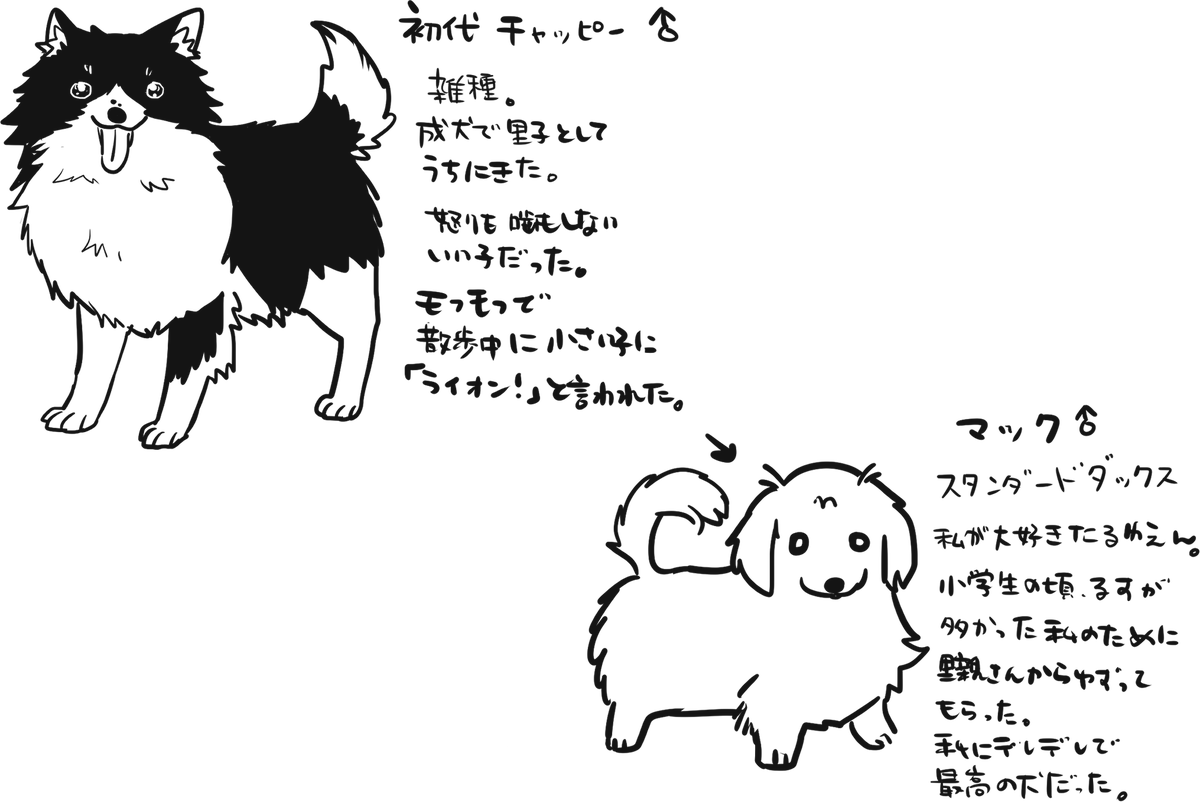 初代 チャッピー ♂
雑種。
成犬で里子として
うちにきた。
怒りも噛もしない
いい子だった。
モフモフで
散歩中に小さい子に
「ライオン!」と言われた。
マック♂
スタンダードダックス
私が大好きたるわえん。
小学生の頃、るすが
多かった私のために
里親さんからゆずって
もらった。
私にデレデレで
最高の犬だった。